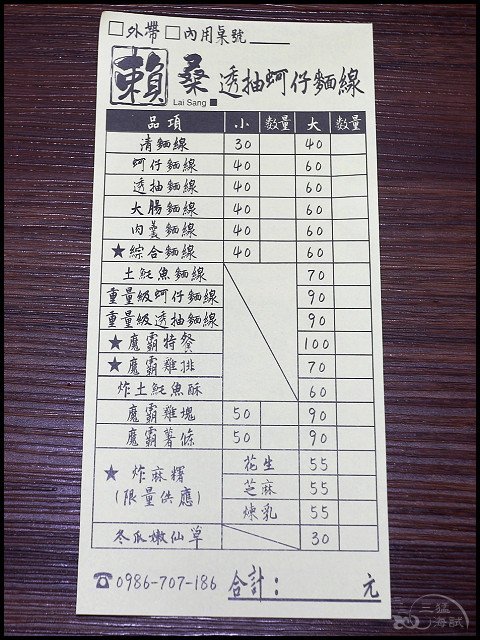 □外帶 □內用桌號____
賴桑 透抽蚵仔麵線
Lai Sang
品項 小 數量 大 數量
清麵線 30 40
蚵仔麵線 40 60
透抽麵線 40 60
大腸麵線 40 60
肉羹麵線 40 60
★綜合麵線 40 60
土魠魚麵線 70
重量級蚵仔麵線 90
重量級透抽麵線 90
★魔霸特餐 100
★魔霸雞排 70
炸土魠魚酥 60
魔霸雞塊 50 90
魔霸薯條 50 90
★炸麻糬
(限量供應)
花生 55
芝麻 55
煉乳 55
冬瓜嫩仙草 30
☎0986-707-186 合計: 元
三猛
海試